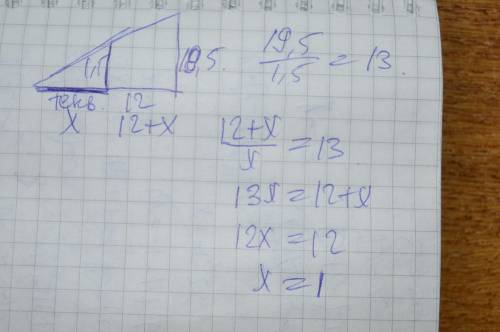 1,5
19,5
тень 12
x 12+x
19,5/1,5 = 13
(12+x)/x = 13
13x = 12+x
12x = 12
x = 1